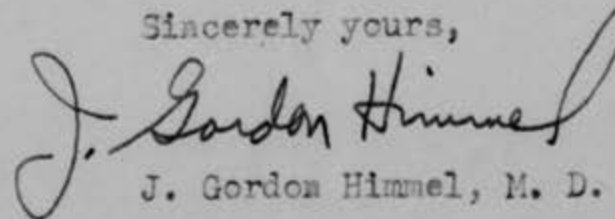 Sincerely yours,
J. Gordon Himmel
J. Gordon Himmel, M. D.